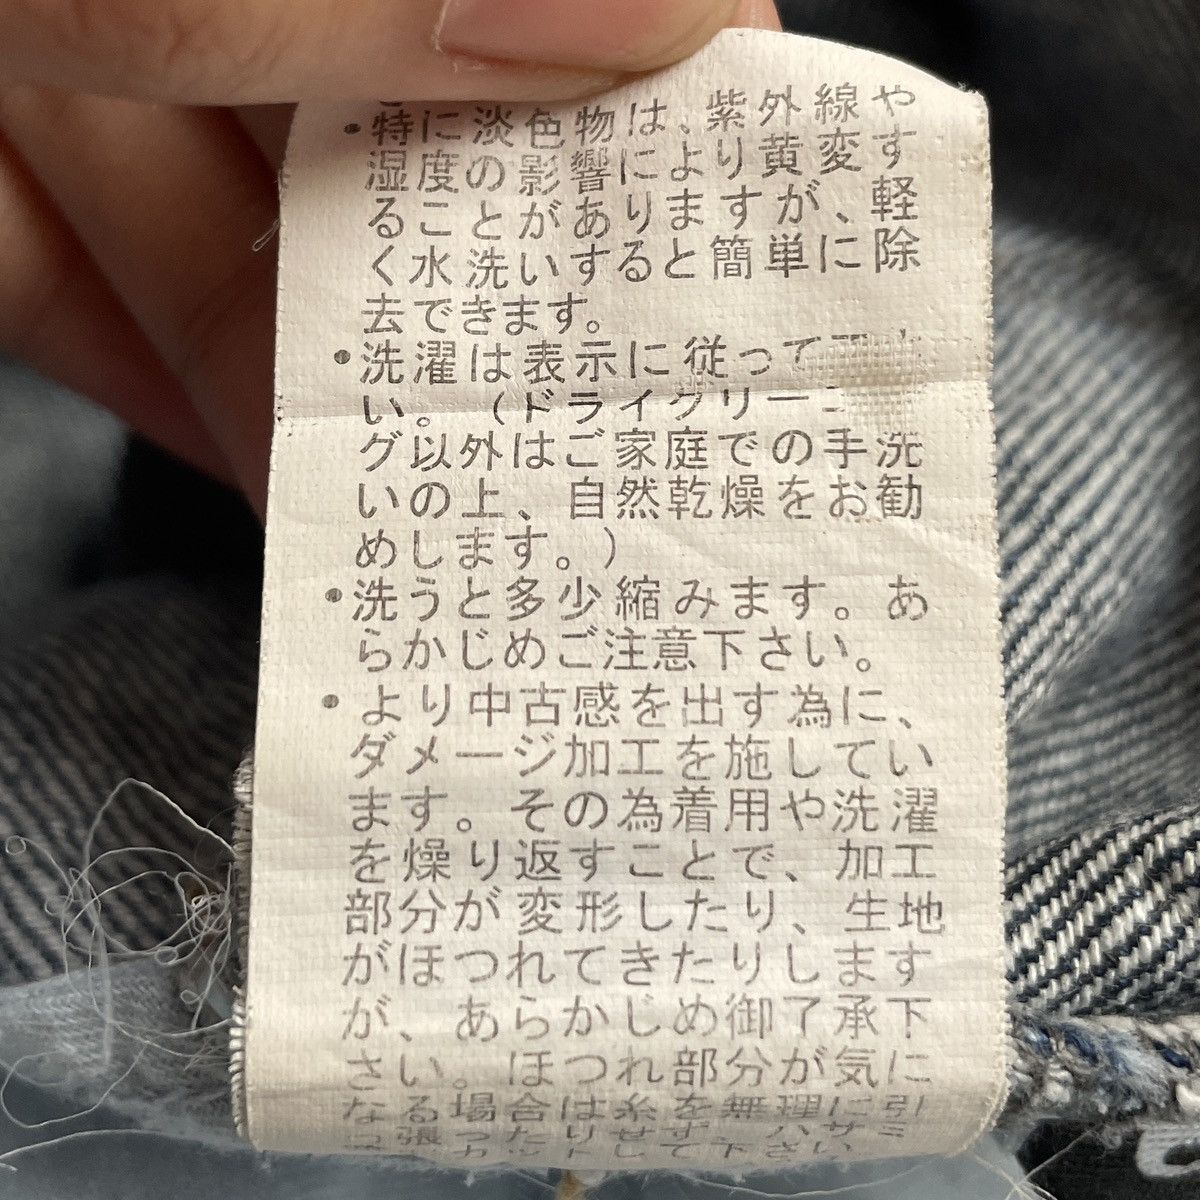 •特に淡色物は、紫外線や
湿度の影響により黄変す
ることがありますが、軽
く水洗いすると簡単に除
去できます。
•洗濯は表示に従って
い。（ドライクリー
グ以外はご家庭での手洗
いの上、自然乾燥をお勧
めします。）
•洗うと多少縮みます。あ
らかじめご注意下さい。
•より中古感を出す為に、
ダメージ加工を施してい
ます。その為着用や洗濯
を燥り返すことで、加工
部分が変形したり、生地
がほつれてきたりします
が、あらかじめ御了承下
さい。ほつれ部分が気に
なる場合は糸を無理に引
っ張ったりせず、ハサミ
カットして下さい